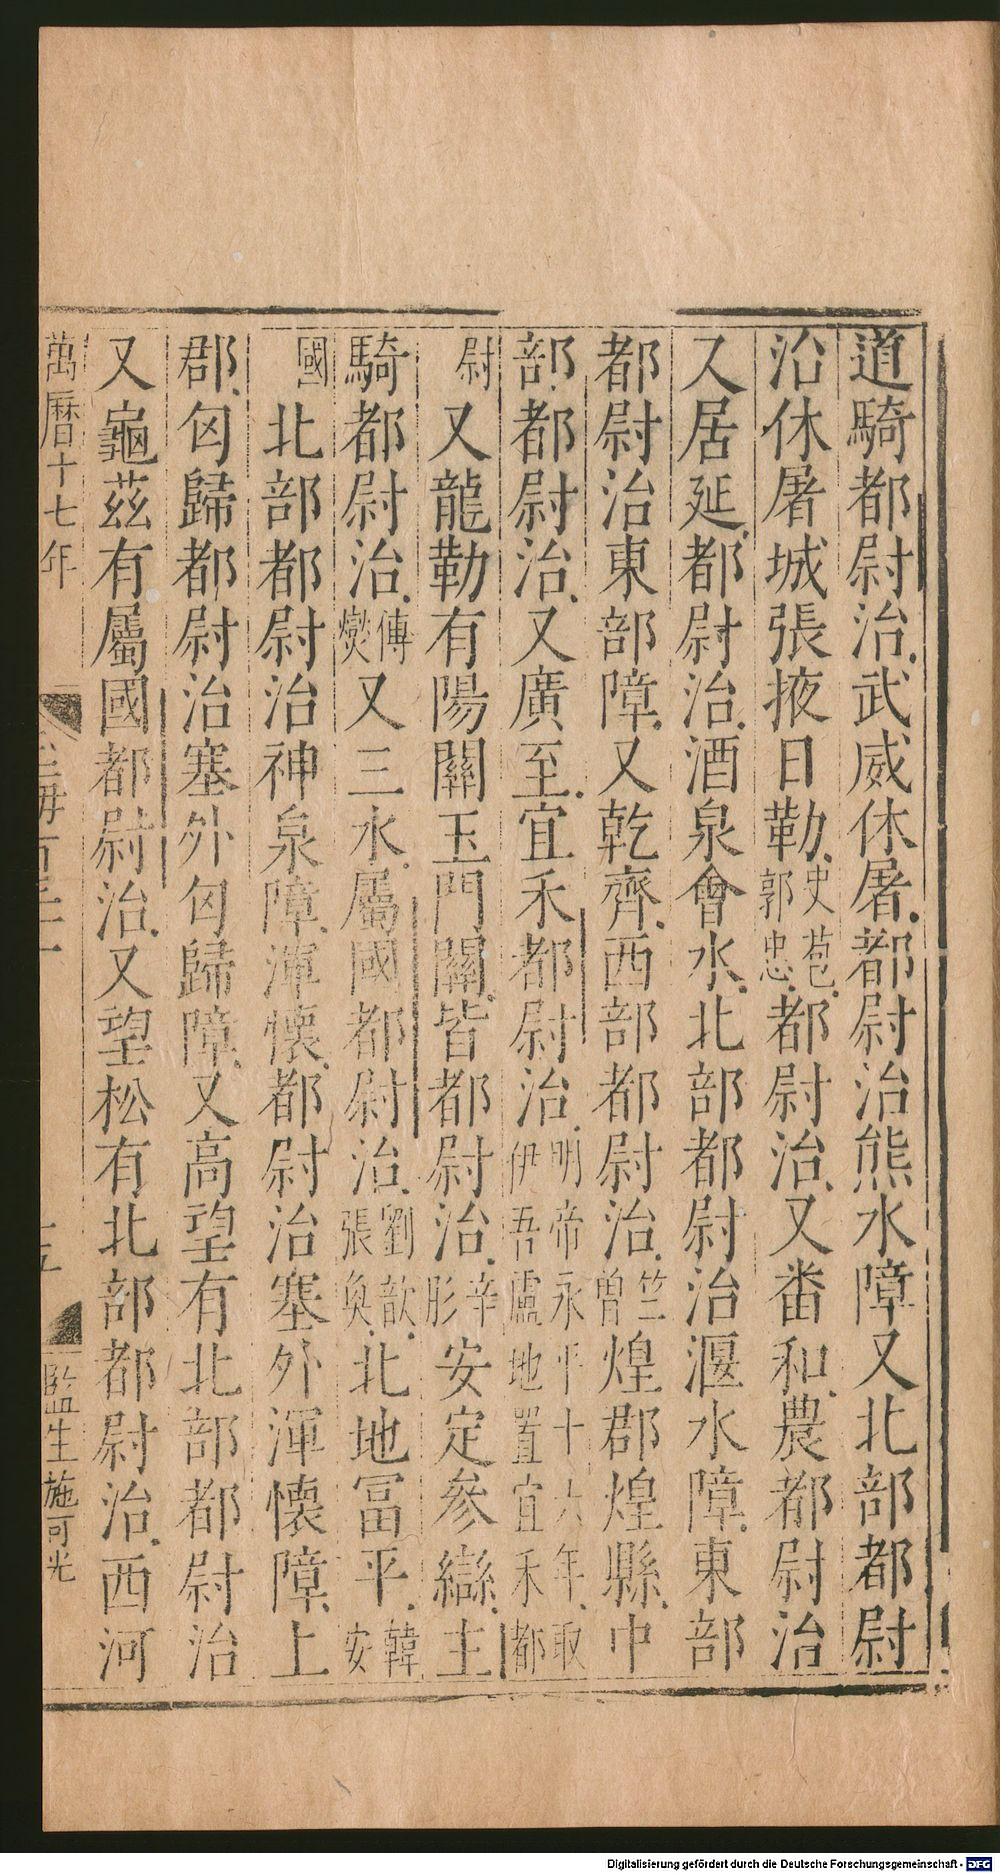 道騎都尉治武威休屠都尉治熊水障又北部都尉
治休屠城張掖日勒史苞郭忠都尉治又番和農都尉治
又居延都尉治酒泉會水北部都尉治渥水障東部
都尉治東部障又乾齊西部都尉治竺曾煌郡煌縣中
部都尉治又廣至宜禾都尉治明帝永平十六年取伊吾盧地置宜禾都
尉又龍勒有陽關玉門關皆都尉治辛肜安定參䜌主
騎都尉治傅燮又三水屬國都尉治劉歆張奐北地富平韓安
國北部都尉治神泉障渾懷都尉治塞外渾懷障上
郡匈歸都尉治塞外匈歸障又高望有北部都尉治
又龜茲有屬國都尉治又望松有北部都尉治西河
萬曆十七年 十五 監生施可光
Digitalisierung gefördert durch die Deutsche Forschungsgemeinschaft - DFG